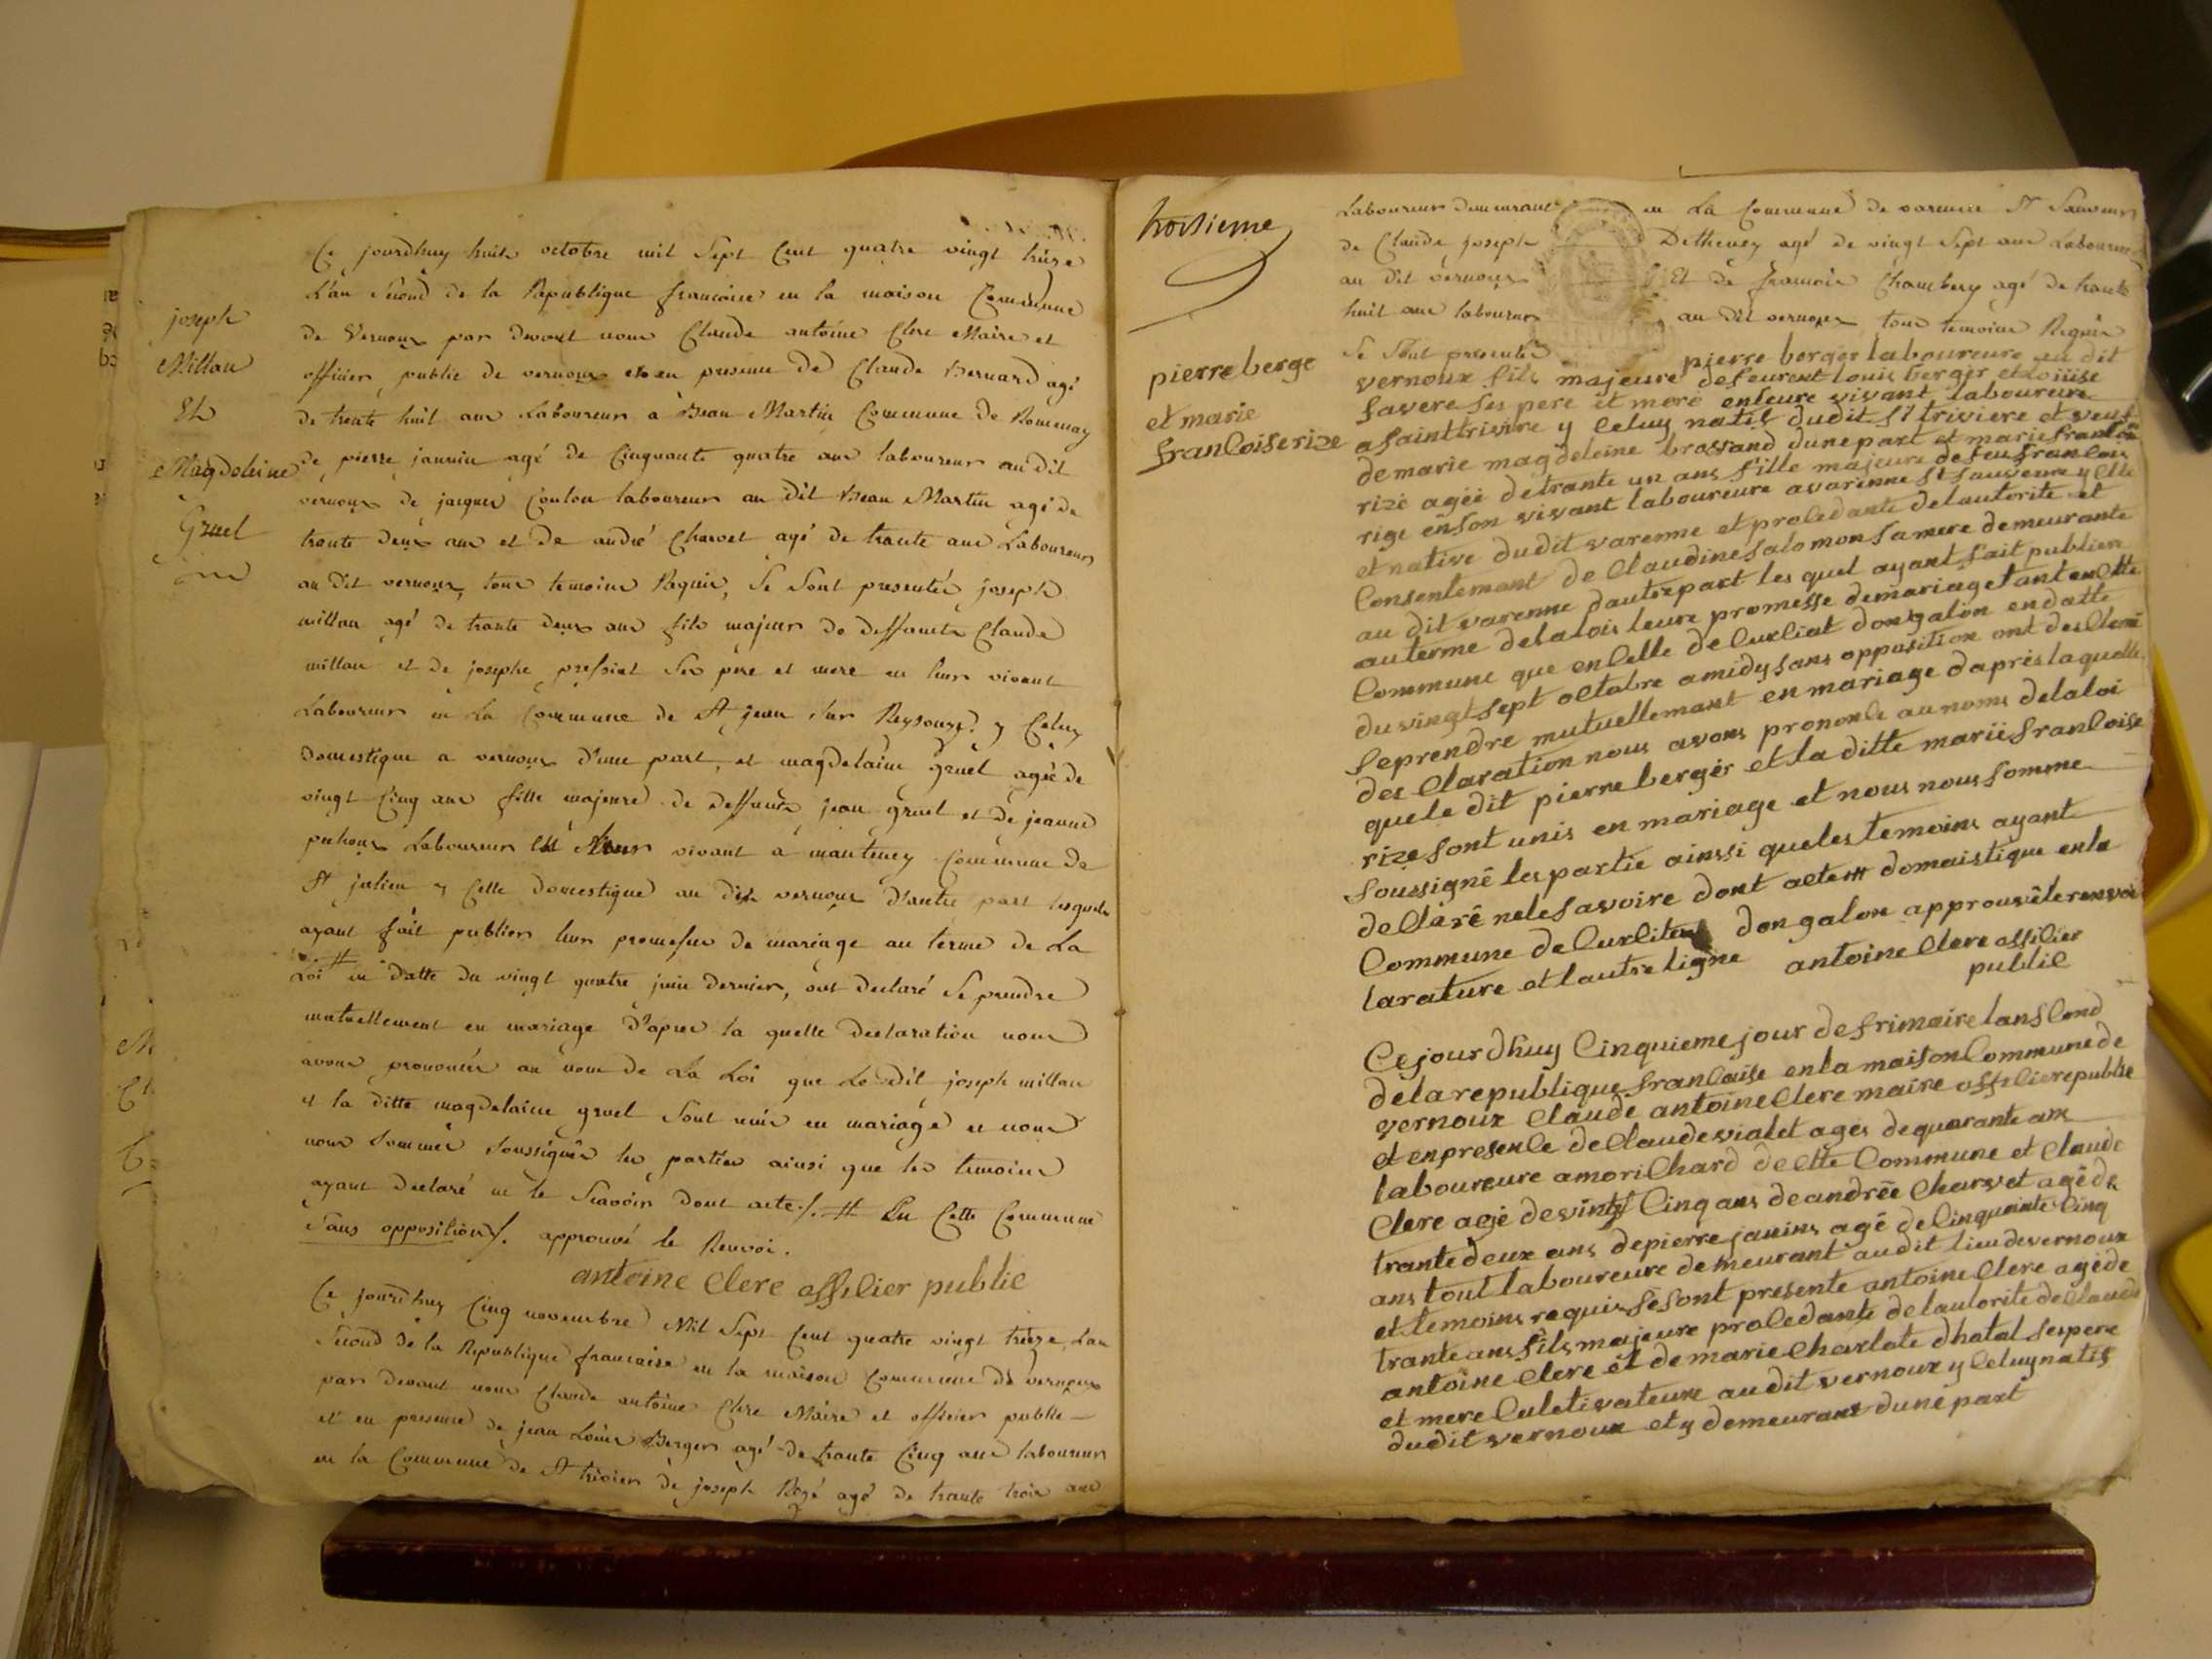 joseph
Millau
Et
Magdeleine
Gruel
Ce jourdhuy huit octobre mil Sept Cent quatre vingt treize
L'an Second de la Republique francoise en la maison Commune
de Vernoux par devant nous Claude antoine Clere Maire et
officier public de vernoux et en presence de Claude Bernard agé
de trente huit ans Laboureur a Beau Martin Commune de Romenay
de pierre jannin agé de Cinquante quatre ans laboureur au dit
vernoux de jacques Coulon laboureur au dit Beau Martin agé de
trante deux ans et de andré Charvet agé de trante ans Laboureur
au dit vernoux, tous temoins Requis, Se Sont presentés joseph
millau agé de trante deux ans fils majeur de deffunts Claude
millau et de josephe prefsiat Ses pere et mere en leur vivant
Laboureur en La Commune de St jean Sur Reysouze y Celuy
Domestique a vernoux d'une part, et magdelaine gruel agée de
vingt Cinq ans fille majeure de deffunts jean gruel et de jeanne
puhoux Laboureur en leur vivant a manteney Commune de
St julien y Celle domestique au dit vernoux d'autre part lesquels
ayant fait publier leur promesse de mariage au terme de La
Loi # en datte du vingt quatre juin dernier, ont declaré Se prendre
mutuellement en mariage d'apres la quelle declaration nous
avons prononcés au nom de La Loi que Le dit joseph millau
et la ditte magdelaine gruel Sont unis en mariage et nous
nous Sommes Soussignés les parties ainsi que les temoins
ayant declaré ne le Scavoir dont acte /. # En Cette Commune
Sans opposition /. approuvé le Renvoi.
antoine Clere officier public
Ce jourdhuy Cinq novembre Mil Sept Cent quatre vingt treize, L'an
Second de la Republique francaise en la maison Commune de vernoux
par devant nous Claude antoine Clere Maire et officier public
et en presence de jean Louis Berger agé de trante Cinq ans laboureur
en la Commune de St trivier de joseph Rizé agé de trante trois ans
troisieme
pierre berge
et marie
francoise rize
Laboureur demeurant en La Commune de varenne St Sauveur
de Claude joseph Dethevey agé de vingt Sept ans Laboureur
au dit vernoux Et de francois Chambery agé de trante
huit ans laboureur au dit vernoux tous temoins Requis
Se Sont presentés pierre berger laboureure au dit
vernoux fils majeure defeurent louis berger et Loiiise
favere ses pere et mere enleure vivant laboureure
a sainttriviere y Celuy natif dudit St triviere et veuf
de marie magdeleine brossand dunepart et marie francoise
rizé agée detrante un ans fille majeure defeu francois
rige enson vivant laboureure avarenne St sauveure y Celle
et native dudit varenne et procedante delautorite et
Consentemant de Claudine salomon samere demeurante
au dit varenne dautrepart les quel ayant fait publier
auterme delalois leure promesse demariage tant en Cette
Commune que en Celle de Curciat dongalon en datte
du vingt sept octobre amidy sans opposition ont desclaré
se prendre mutuellemant en mariage daprès laquelle
desclaration nous avons prononcé au noms delaloi
que le dit pierre berger et la ditte marie francoise
rize sont unis en mariage et nous nous somme
soussigné les partie ainssi que les temoins ayant
declaré nelesavoire dont acte # domaistique en la
Commune de Curcitat don galon approuvé le renvoi
larature et lautre ligne antoine Clere officier
public
Cejourdhuy Cinquieme jour de frimaire lan scond
de la republique francaise en la maison Commune de
vernoux Claude antoine Clere maire officier publie
et en presence de Claude vialet ages de quarante ans
laboureure amorichard de Cette Commune et Claude
Clere agé de vingt Cinq ans de andrée Charvet agé de
trante deux ans de pierre janins agé de Cinquante Cinq
ans tout laboureure demeurant audit lieu de vernoux
et temoins requis se sont presente antoine Clere agé de
trante ans fils majeure procedante delautorite de Claude
antoine Clere et de marie Charlote dhatal ses pere
et mere Culetivateure au dit vernoux y Celuy natif
dudit vernoux et y demeurant dune part